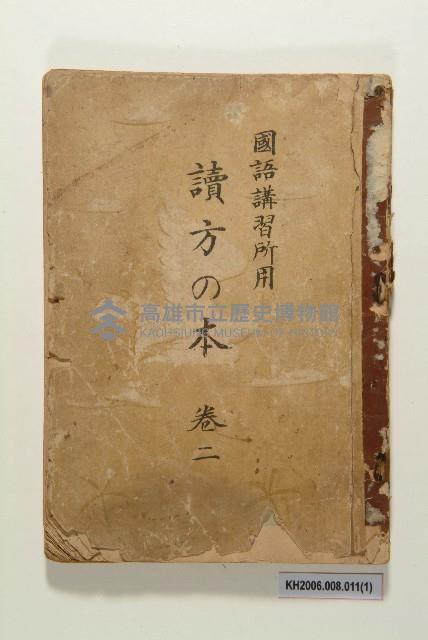 國語講習所用
讀方の本 卷二
高雄市立歷史博物館
KAOHSIUNG MUSEUM OF HISTORY
KH2006.008.011(1)